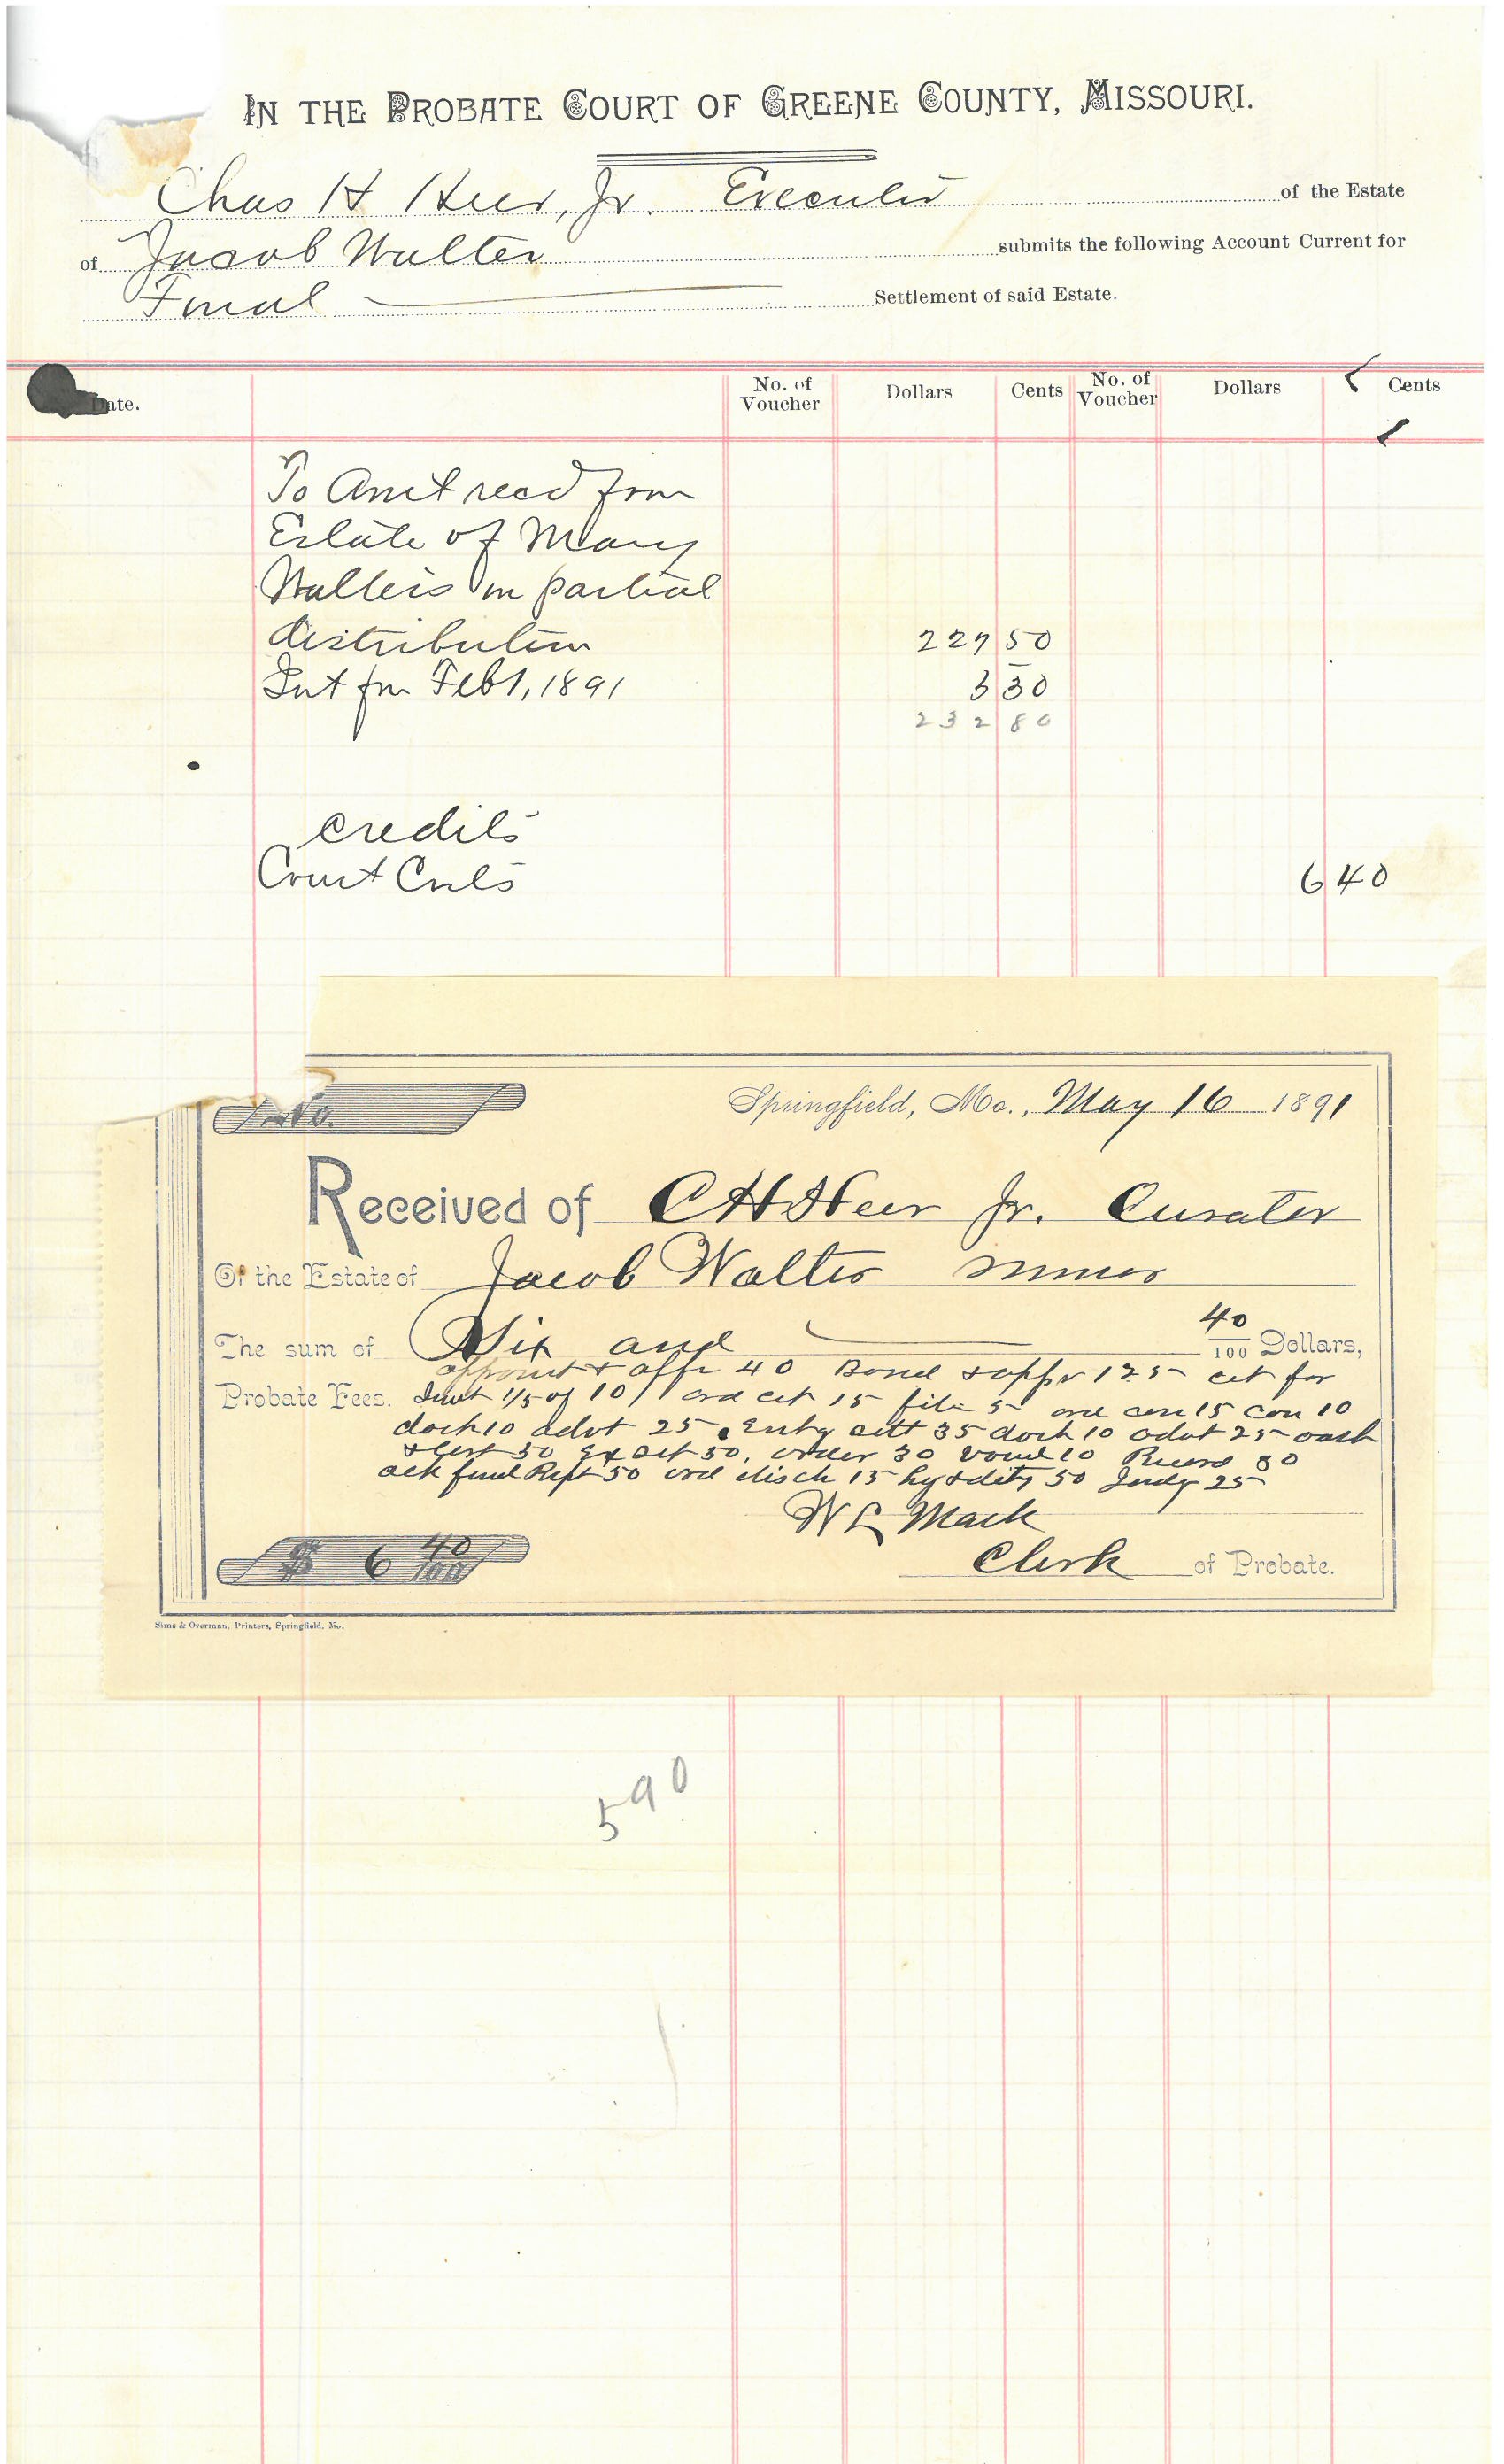 IN THE PROBATE COURT OF GREENE COUNTY, MISSOURI.
Chas H Heer, Jr. Executor of the Estate
of Jacob Walter submits the following Account Current for
Final Settlement of said Estate.
Date. No. of Voucher Dollars Cents No. of Voucher Dollars Cents
To Amt recd from
Estate of Mary
Walters in partial
distribution 229 50
Int from Feb 1, 1891 3 30
232 80
Credits
Court Costs 6 40
No. Springfield, Mo., May 16 1891
Received of C H Heer Jr. Curator
Of the Estate of Jacob Walter minor
The sum of Six and 40/100 Dollars,
appoint & affi 40 Bond & appr 125 cet for
Probate Fees. Invt 1/5 of 10/ ord cet 15 file 5 ord con 15 con 10
dock 10 advt 25 Entg sett 35 dock 10 advt 25 oath
& cert 30 Ex sett 50, order 30 vouch 10 Record 80
ack final Rept 50 ord disch 15 50 Judg 25
W L Mack
$ 6 40/100 Clerk of Probate.
Sims & Overman, Printers, Springfield, Mo.
590